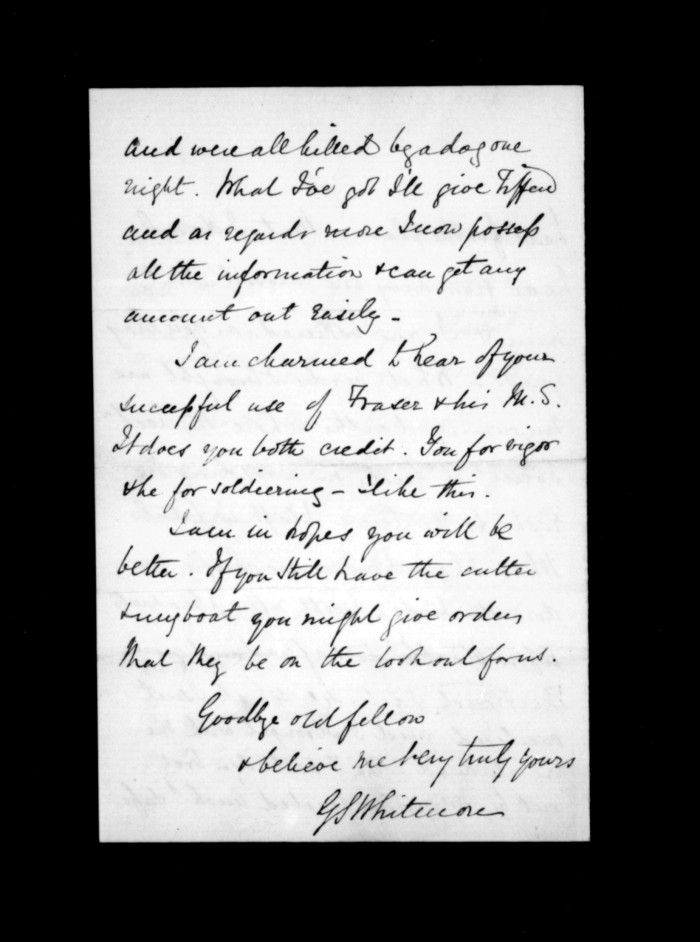 and were all killed by a dog one
night. What I've got I'll give Tiffen
and as regards more I now possess
all the information & can get any
amount out easily –
I am charmed to hear of your
successful use of Fraser & his M.S.
It does you both credit. You for vigor
& he for soldiering – I like this.
I am in hopes you will be
better. If you still have the cutter
& my boat you might give orders
that they be on the look out for us.
Goodbye old fellow
& believe me very truly yours
G S Whitmore